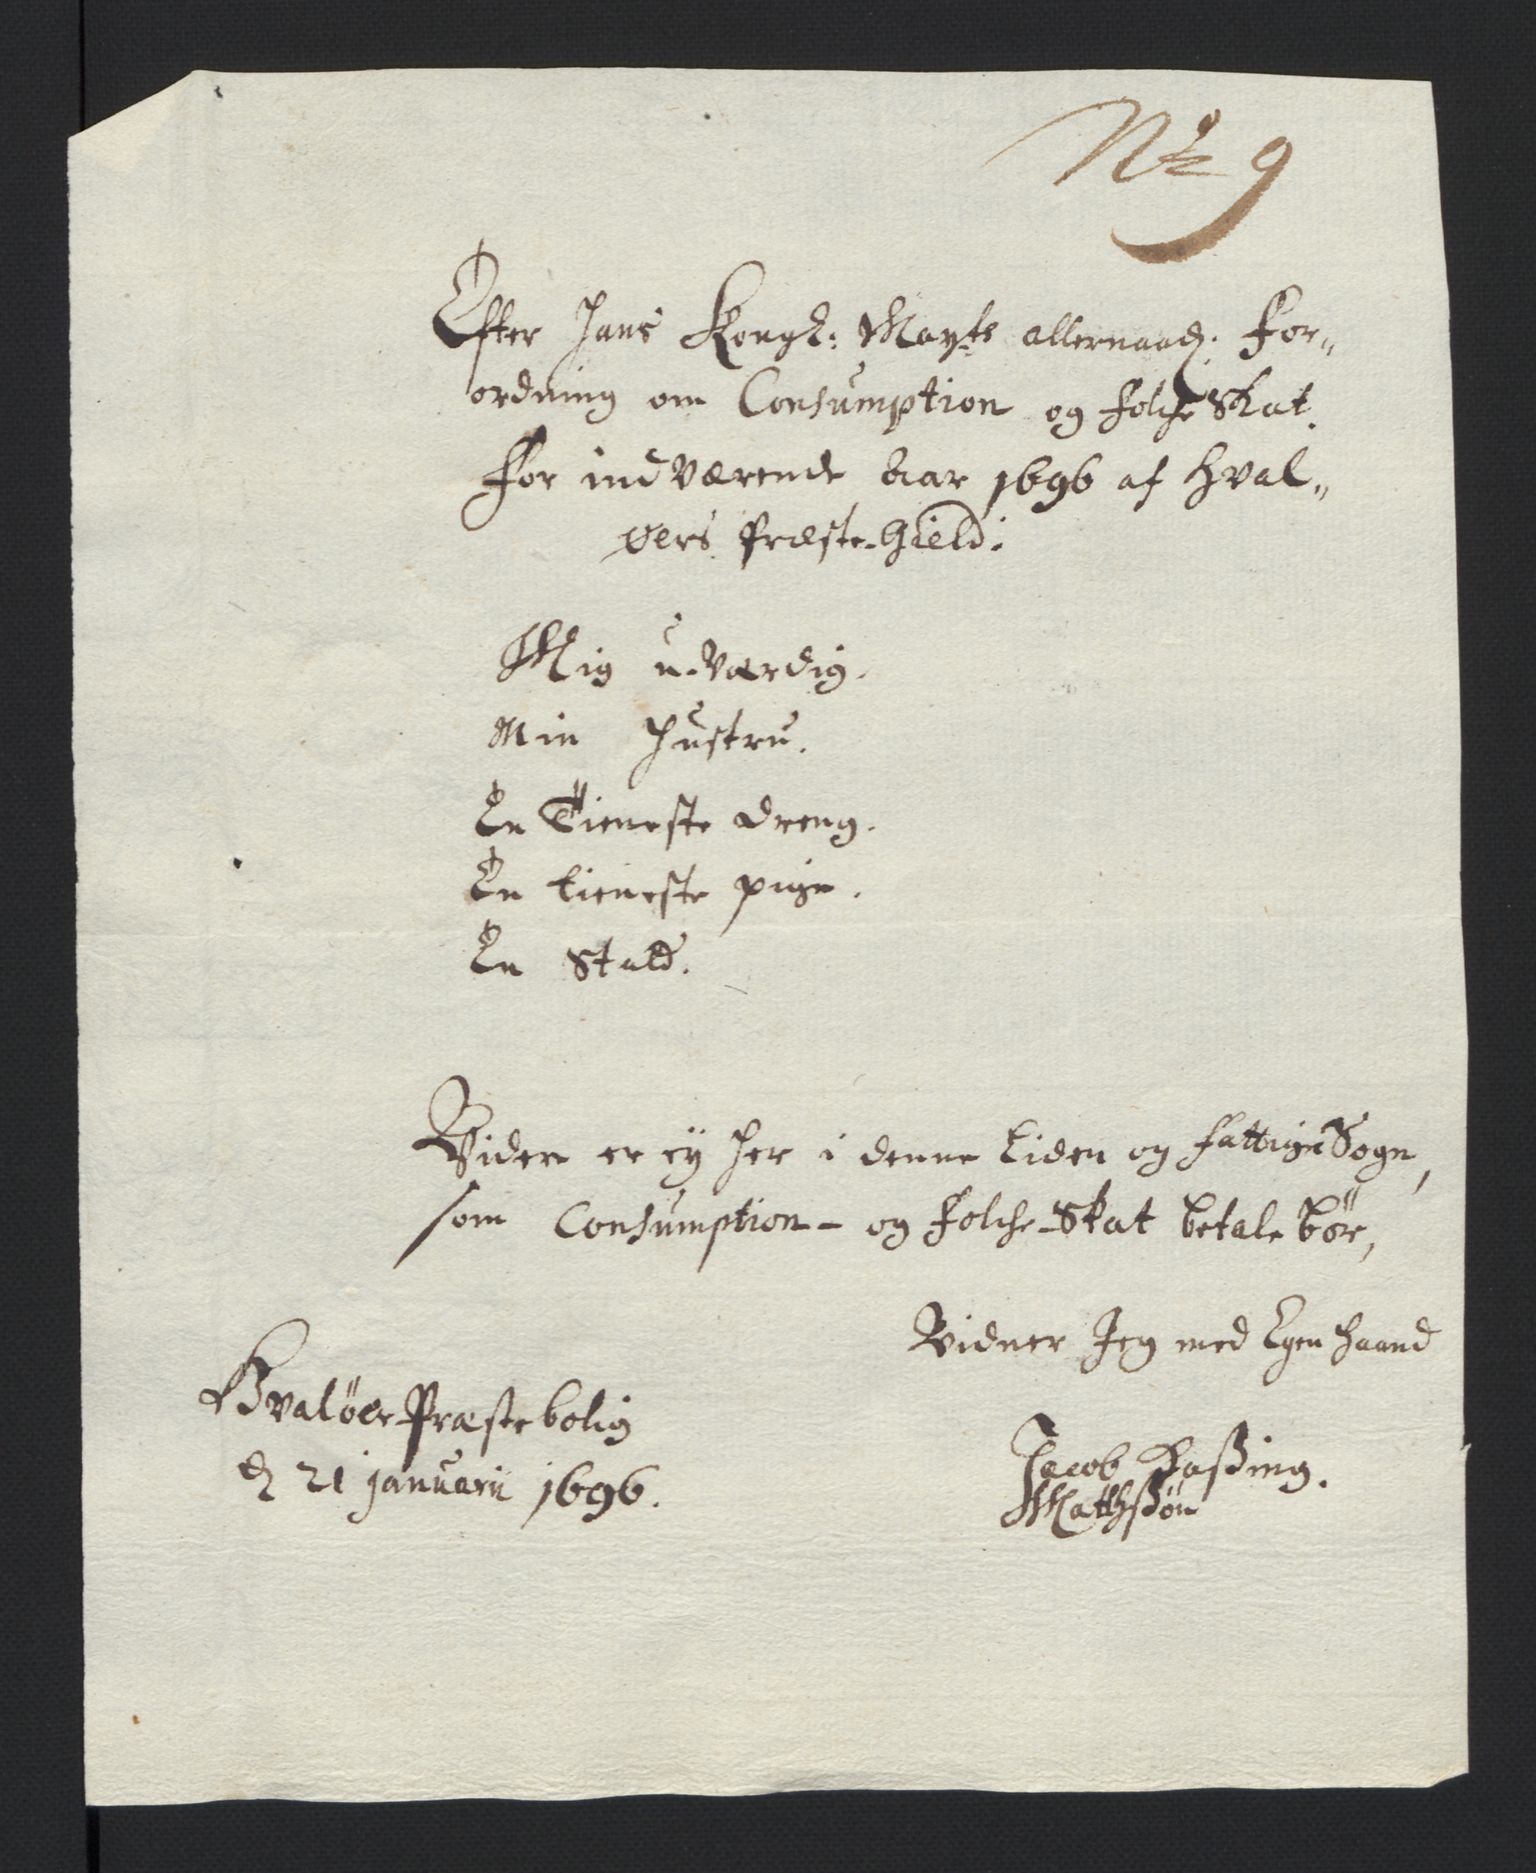 No 9
Efter Hans Kongl: Mayts allernaad: For„
ordning om Consumption og folche Skat.
For indværende Aar 1696 af Hval„
øers Præste-Gield:
Mig u-værdig.
Min Hustru.
En Tieneste dreng.
En tieneste pige.
En Stald.
Vider er ey her i denne liden og fattige Sogn,
som Consumption- og folche-Skat betale bør,
Vidner Jeg med Egen Haand
Hvaløer Præstebolig
d 21 januarii 1696.
Jacob
Matthßøn